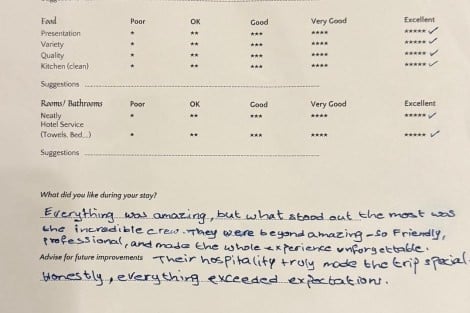 Food Poor OK Good Very Good Excellent
Presentation * ** *** **** ***** ✓
Variety * ** *** **** ***** ✓
Quality * ** *** **** ***** ✓
Kitchen (clean) * ** *** **** ***** ✓
Suggestions
Rooms/ Bathrooms Poor OK Good Very Good Excellent
Neatly * ** *** **** ***** ✓
Hotel Service
(Towels, Bed...) * ** *** **** ***** ✓
Suggestions
What did you like during your stay?
Everything was amazing, but what stood out the most was
the incredible crew. They were beyond amazing - so Friendly,
professional, and made the whole experience unforgettable.
Advise for future improvements Their hospitality truly made the trip special.
Honestly, everything exceeded expectations.